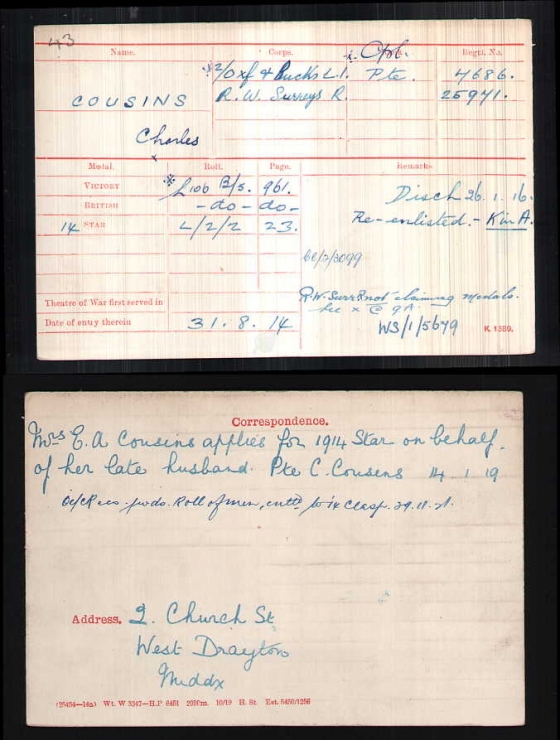 43
Name. Corps. Regtl. No.
*2/Oxf & Bucks L.I. Pte. 4686.
COUSINS R. W. Surreys R. 25941.
Charles
x
Medal. Roll. Page. Remarks.
VICTORY * L106 B/5. 961. Disch 26. 1. 16.
BRITISH -do- -do-
14 STAR L/2/2 23. Re-enlisted. - K in A.
R.W. Surr R not claiming medals.
Theatre of War first served in
Date of entry therein 31. 8. 14 WS/1/5679 K. 1380.
Correspondence.
Mrs E. A Cousins applies for 1914 Star on behalf.
of her late husband. Pte C. Cousens 14 1 19
fwds. Roll of men, entd to 14 Clasp. 29.11.21.
Address. 2. Church St
West Drayton
Middx
(25454—14a) Wt. W 3347—H.P. 6451 2000m. 10/19 H. St. Est. 5450/1256